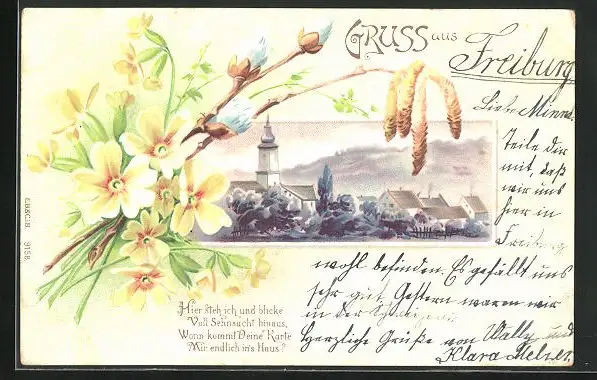 GRUSS aus
Freiburg
Liebe Minna,
Teile dir
mit, daß
wir uns
hier in
Freiburg
wohl befinden. Es gefällt uns
sehr gut. Gestern waren wir
in der
Herzliche Grüße von Wally und
Klara
Hier steh ich und blicke
Voll Sehnsucht hinaus,
Wann kommt Deine Karte
Mir endlich in's Haus?
9158